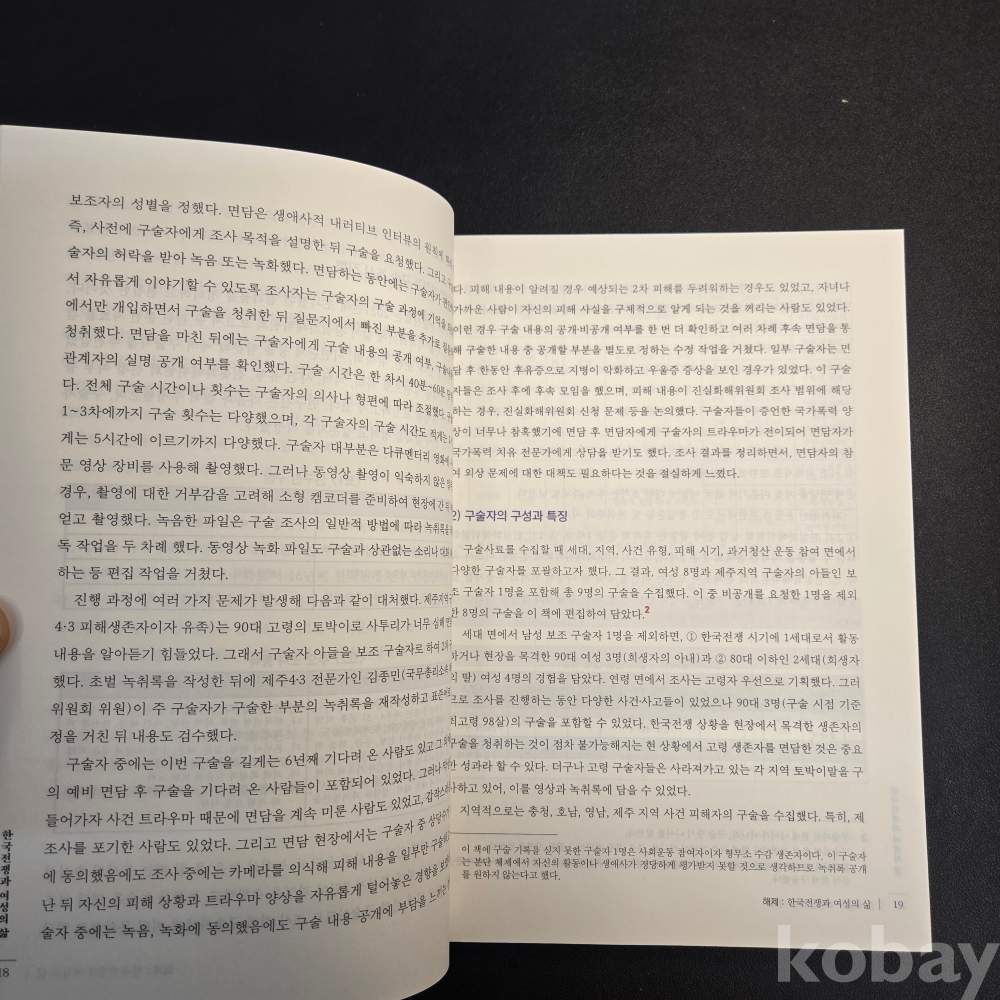 보조자의 성별을 정했다. 면담은 생애사적 내러티브 인터뷰의 원칙에
즉, 사전에 구술자에게 조사 목적을 설명한 뒤 구술을 요청했다. 그리고
술자의 허락을 받아 녹음 또는 녹화했다. 면담하는 동안에는 구술자가
서 자유롭게 이야기할 수 있도록 조사자는 구술자의 구술 과정에
에서만 개입하면서 구술을 청취한 뒤 질문지에서 빠진 부분을 추가로
청취했다. 면담을 마친 뒤에는 구술자에게 구술 내용의 공개 여부,
관계자의 실명 공개 여부를 확인했다. 구술 시간은 한 차시 40분~60분
다. 전체 구술 시간이나 횟수는 구술자의 의사나 형편에 따라 조절했다.
1~3차에까지 구술 횟수는 다양했으며, 각 구술자의 구술 시간도 적게는
게는 5시간에 이르기까지 다양했다. 구술자 대부분은 다큐멘터리
문 영상 장비를 사용해 촬영했다. 그러나 동영상 촬영이 익숙하지 않은
경우, 촬영에 대한 거부감을 고려해 소형 캠코더를 준비하여 현장에
얻고 촬영했다. 녹음한 파일은 구술 조사의 일반적 방법에 따라 녹취록을
독 작업을 두 차례 했다. 동영상 녹화 파일도 구술과 상관없는 소리나
하는 등 편집 작업을 거쳤다.
진행 과정에 여러 가지 문제가 발생해 다음과 같이 대처했다. 제주지역
4·3 피해생존자이자 유족)는 90대 고령의 토박이로 사투리가 너무 심해
내용을 알아듣기 힘들었다. 그래서 구술자 아들을 보조 구술자로 하여
했다. 초벌 녹취록을 작성한 뒤에 제주4·3 전문가인 김종민(국무총리소속
위원회 위원)이 주 구술자가 구술한 부분의 녹취록을 재작성하고
정을 거친 뒤 내용도 검수했다.
구술자 중에는 이번 구술을 길게는 6년째 기다려 온 사람도 있고 그
의 예비 면담 후 구술을 기다려 온 사람들이 포함되어 있었다. 그러나
들어가자 사건 트라우마 때문에 면담을 계속 미룬 사람도 있었고,
조사를 포기한 사람도 있었다. 그리고 면담 현장에서는 구술자 중
에 동의했음에도 조사 중에는 카메라를 의식해 피해 내용을 일부만
난 뒤 자신의 피해 상황과 트라우마 양상을 자유롭게 털어놓은 경향을
술자 중에는 녹음, 녹화에 동의했음에도 구술 내용 공개에 부담을 느끼는
한국전쟁과 여성의 삶
18
다. 피해 내용이 알려질 경우 예상되는 2차 피해를 두려워하는 경우도 있었고, 자녀나
가까운 사람이 자신의 피해 사실을 구체적으로 알게 되는 것을 꺼리는 사람도 있었다.
이런 경우 구술 내용의 공개·비공개 여부를 한 번 더 확인하고 여러 차례 후속 면담을 통
해 구술한 내용 중 공개할 부분을 별도로 정하는 수정 작업을 거쳤다. 일부 구술자는 면
담 후 한동안 후유증으로 지병이 악화하고 우울증 증상을 보인 경우가 있었다. 이 구술
자들은 조사 후에 후속 모임을 했으며, 피해 내용이 진실화해위원회 조사 범위에 해당
하는 경우, 진실화해위원회 신청 문제 등을 논의했다. 구술자들이 증언한 국가폭력 양
상이 너무나 참혹했기에 면담 후 면담자에게 구술자의 트라우마가 전이되어 면담자가
국가폭력 치유 전문가에게 상담을 받기도 했다. 조사 결과를 정리하면서, 면담자의 참
여 외상 문제에 대한 대책도 필요하다는 것을 절실하게 느꼈다.
2) 구술자의 구성과 특징
구술사료를 수집할 때 세대, 지역, 사건 유형, 피해 시기, 과거청산 운동 참여 면에서
다양한 구술자를 포괄하고자 했다. 그 결과, 여성 8명과 제주지역 구술자의 아들인 보
조 구술자 1명을 포함해 총 9명의 구술을 수집했다. 이 중 비공개를 요청한 1명을 제외
한 8명의 구술을 이 책에 편집하여 담았다.2
세대 면에서 남성 보조 구술자 1명을 제외하면, ① 한국전쟁 시기에 1세대로서 활동
하거나 현장을 목격한 90대 여성 3명(희생자의 아내)과 ② 80대 이하인 2세대(희생자
의 딸) 여성 4명의 경험을 담았다. 연령 면에서 조사는 고령자 우선으로 기획했다. 그러
므로 조사를 진행하는 동안 다양한 사건·사고들이 있었으나 90대 3명(구술 시점 기준
최고령 98살)의 구술을 포함할 수 있었다. 한국전쟁 상황을 현장에서 목격한 생존자의
구술을 청취하는 것이 점차 불가능해지는 현 상황에서 고령 생존자를 면담한 것은 중요
한 성과라 할 수 있다. 더구나 고령 구술자들은 사라져가고 있는 각 지역 토박이말을 구
사하고 있어, 이를 영상과 녹취록에 담을 수 있었다.
지역적으로는 충청, 호남, 영남, 제주 지역 사건 피해자의 구술을 수집했다. 특히, 제
이 책에 구술 기록을 싣지 못한 구술자 1명은 사회운동 참여자이자 형무소 수감 생존자이다. 이 구술자
는 분단 체제에서 자신의 활동이나 생애사가 정당하게 평가받지 못할 것으로 생각하므로 녹취록 공개
를 원하지 않는다고 했다.
해제 : 한국전쟁과 여성의 삶 | 19
kobay